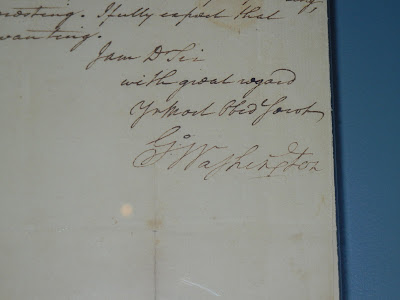 nesting. I fully expect that
wanting.
I am D Sir
with great regard
Yr Most Obed Servt
Go Washington